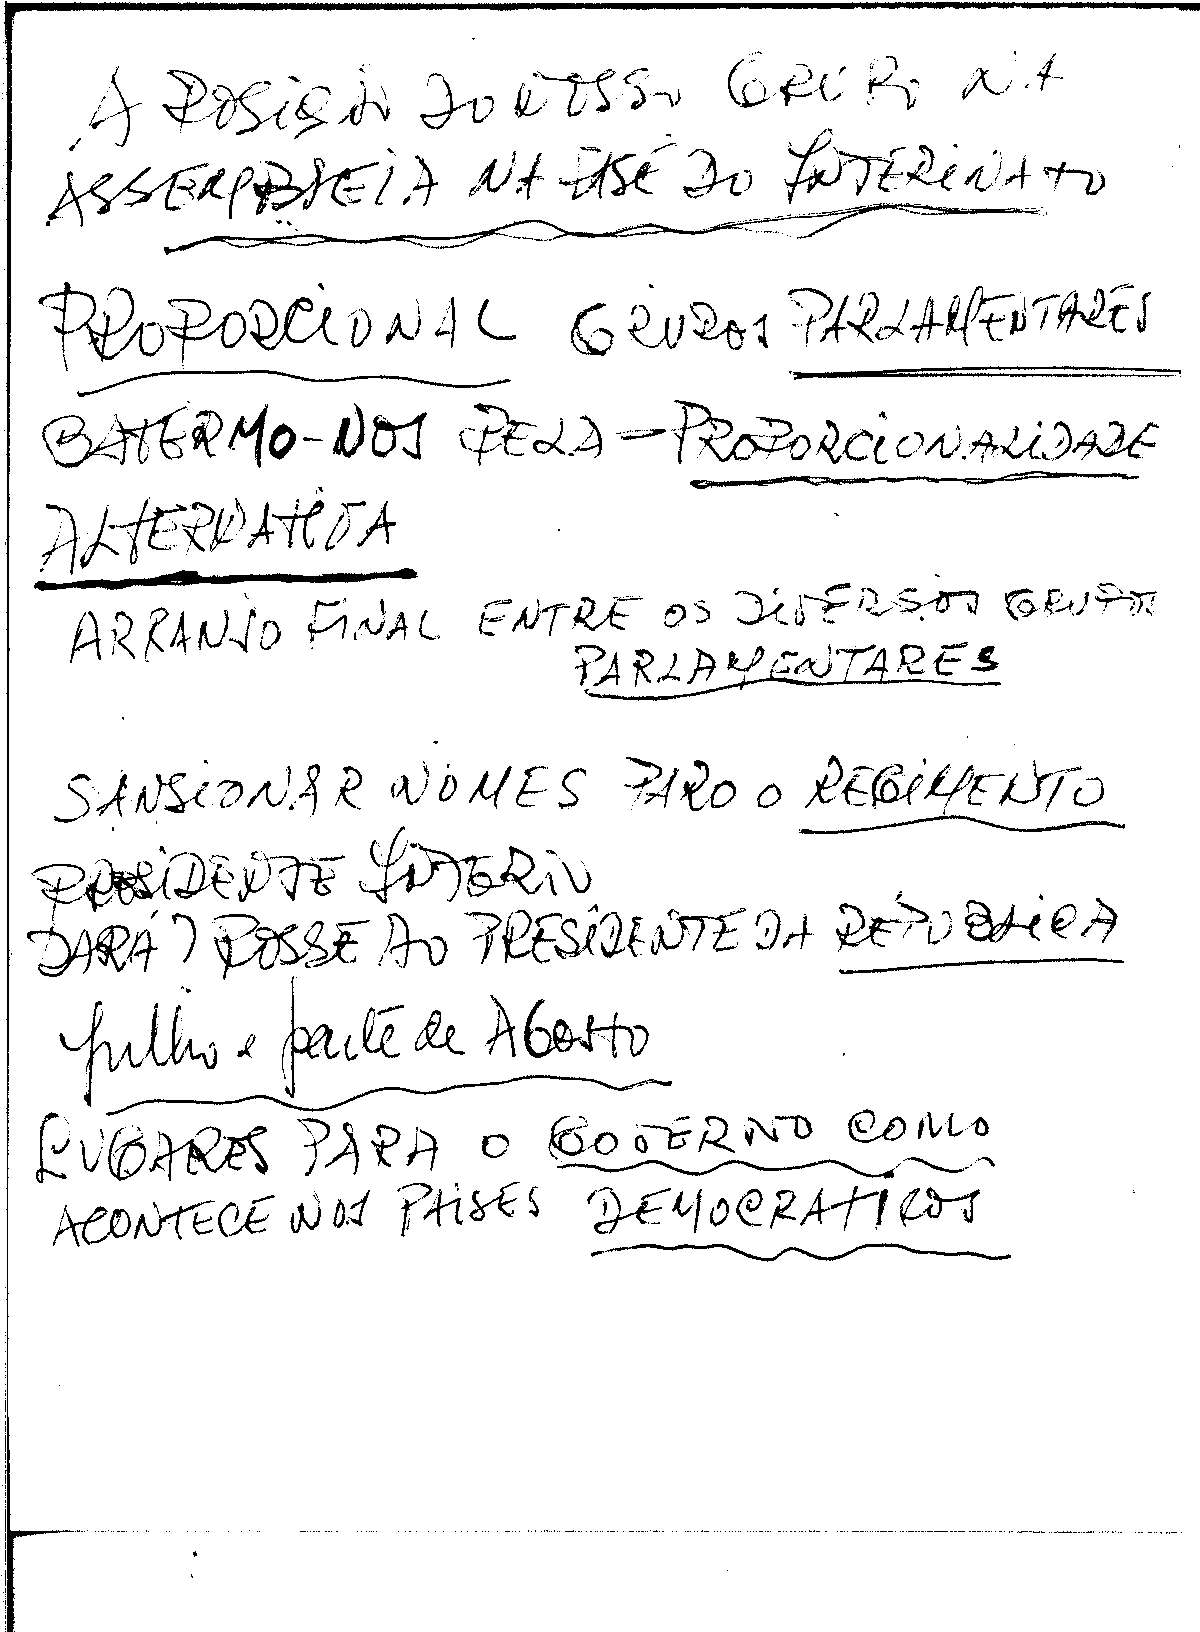 A POSIÇÃO DO NOSSO GRUPO NA
ASSEMBLEIA NA FASE DO INTERINATO
PROPORCIONAL GRUPOS PARLAMENTARES
BATERMO-NOS PELA - PROPORCIONALIDADE
ALTERNATIVA
ARRANJO FINAL ENTRE OS DIVERSOS GRUPOS
PARLAMENTARES
SANSIONAR NOMES PARO O REGIMENTO
PRESIDENTE INTERIN
DARÁ? POSSE AO PRESIDENTE DA REPÚBLICA
Julho e parte de AGOSTO
LUGARES PARA O GOVERNO COMO
ACONTECE NOS PAISES DEMOCRATICOS